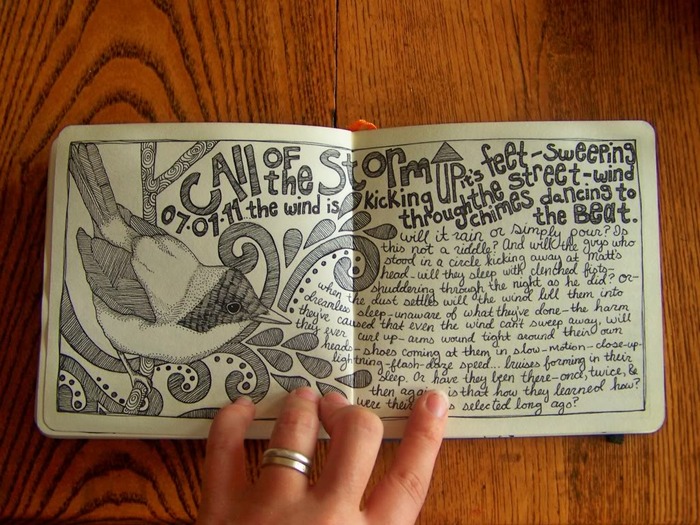 Call of the Storm
07.07.11 the wind is
kicking UP it's feet-sweeping
through the street-wind
chimes dancing to
the Beat.
will it rain or simply pour? Is
this not a riddle? And will the guys who
stood in a circle kicking away at Matt's
head-will they sleep with clenched fists-
shuddering through the night as he did? Or-
when the dust settles will the wind lull them into
dreamless sleep-unaware of what they've done-the harm
they've caused that even the wind can't sweep away. will
they ever curl up-arms wound tight around their own
heads-shoes coming at them in slow-motion-close-up-
lightning-flash-daze speed... bruises forming in their
sleep. Or have they been there-once, twice, &
then again is that how they learned how?
were their selected long ago?